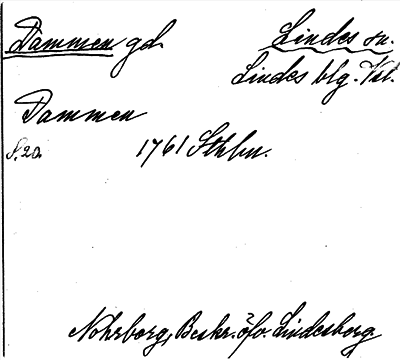 Dammen gd. Lindes sn.
Lindes blg. Vsl.
Dammen
S. 20. 1761 Sthlm.
Nohrborg, Beskr. öfv. Lindesberg